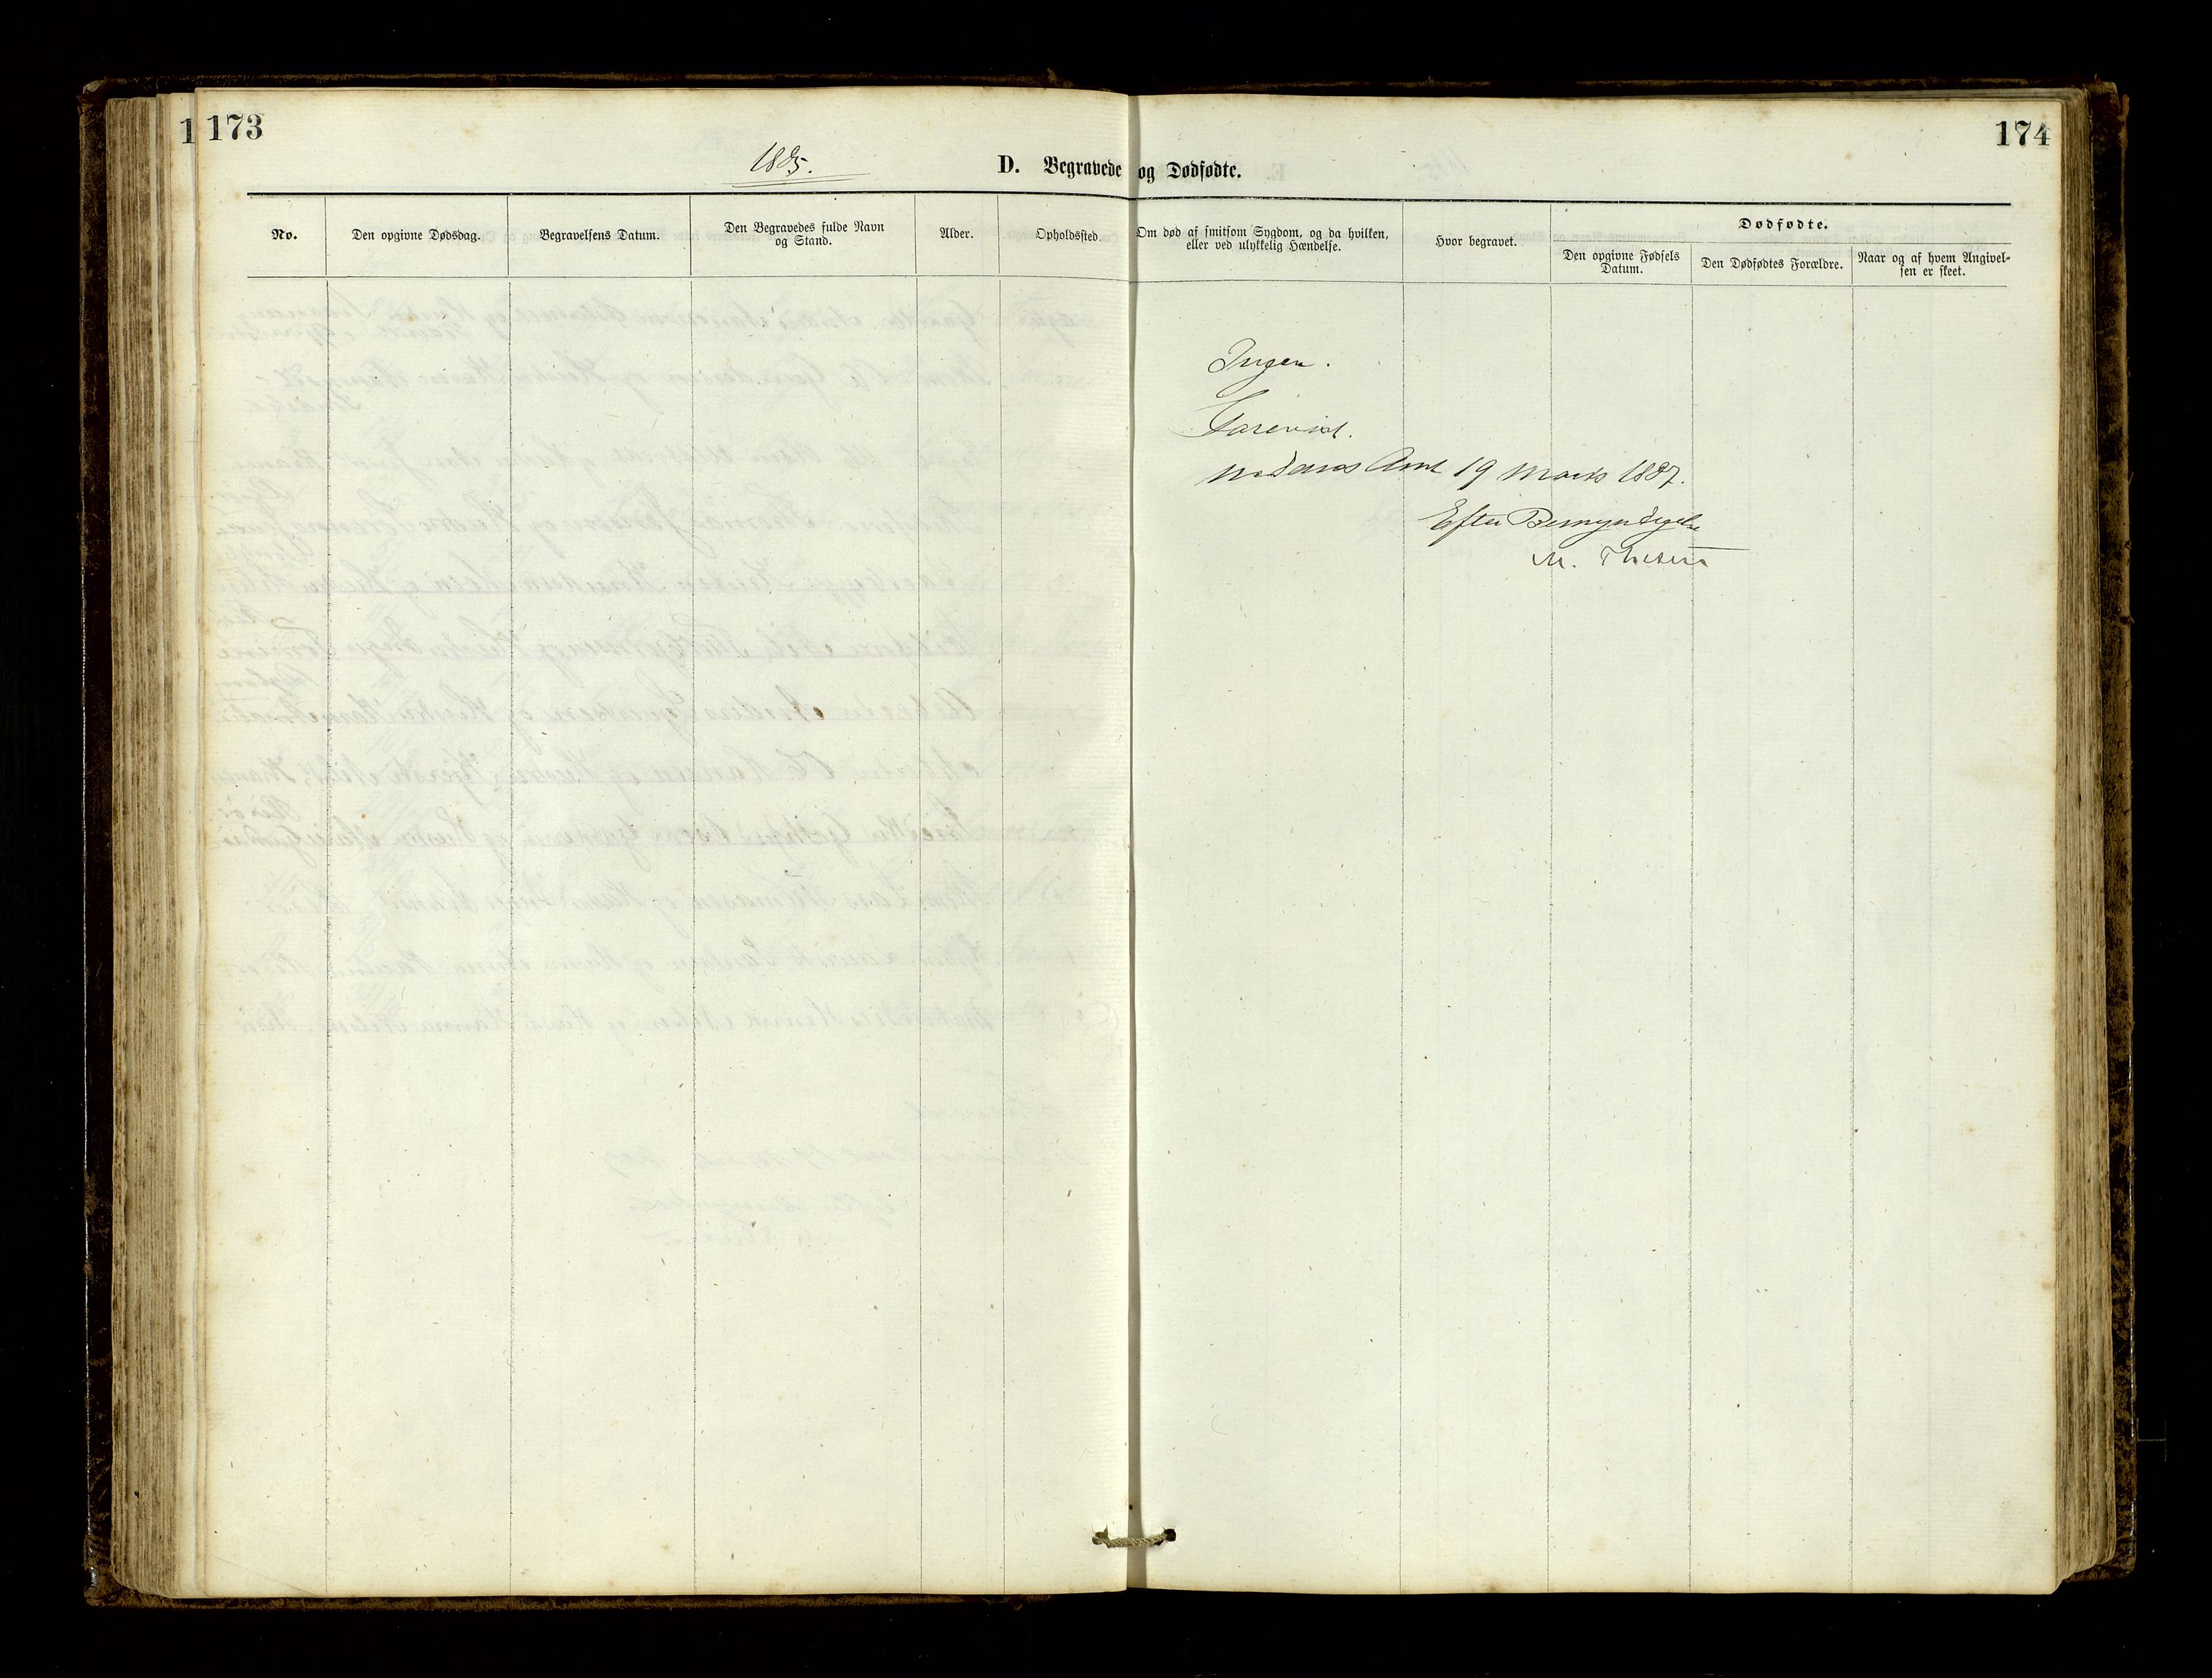 1 173
174
1885.
D. Begravede og Dødfødte.
No.
Den opgivne Dødsdag.
Begravelsens Datum.
Den Begravedes fulde Navn
og Stand.
Alder.
Opholdssted.
Om død af smitsom Sygdom, og da hvilken,
eller ved ulykkelig Hændelse.
Hvor begravet.
Dødfødte.
Den opgivne Fødsels
Datum.
Den Dødfødtes Forældre.
Naar og af hvem Angivel-
sen er skeet.
Ingen.
Forevist.
Nedenes Amt 19 Marts 1887.
Efter Bemyndigelse
M.